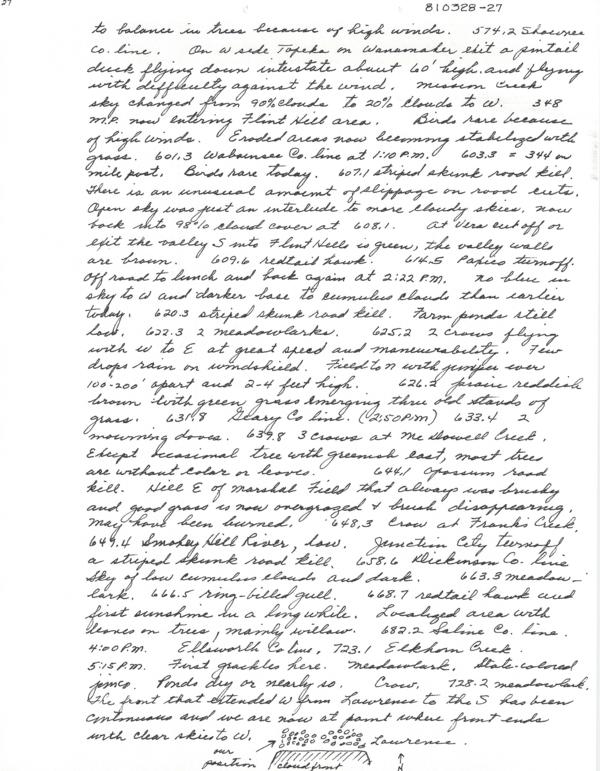 27
810328-27
to balance in trees because of high winds. 574.2 Shawnee
Co. line. On W side Topeka on Wanamaker exit a pintail
duck flying down interstate about 60' high and flying
with difficulty against the wind. Mission Creek
sky changed from 90% clouds to 20% clouds to W. 348
M.P. now entering Flint Hill area. Birds rare because
of high winds. Eroded areas now becoming stabilized with
grass. 601.3 Wabaunsee Co. line at 1:10 P.M. 603.3 = 344 on
mile post. Birds rare today. 607.1 striped skunk road kill.
There is an unusual amount of slippage on road cuts.
Open sky was just an interlude to more cloudy skies. now
back into 98% cloud cover at 608.1. At Vera cut off or
exit the valley S into Flint Hills is green, the valley walls
are brown. 609.6 redtail hawk. 614.5 Paxico turnoff.
Off road to lunch and back again at 2:22 P.M. No blue in
sky to W and darker base to cumulus clouds than earlier
today. 620.3 striped skunk road kill. Farm ponds still
low. 622.3 2 meadowlarks. 625.2 2 crows flying
with W to E at great speed and maneuverability. Few
drops rain on windshield. Field to N with juniper over
100-200' apart and 2-4 feet high. 626.2 prairie reddish
brown with green grass emerging thru old stands of
grass. 631.8 Geary Co line. (2:50 P.M) 633.4 2
mourning doves. 639.8 3 crows at McDowell Creek.
Except occasional tree with greenish cast, most trees
are without color or leaves. 644.1 opossum road
kill. Hill E of Marshal Field that always was brushy
and good grass is now overgrazed & brush disappearing.
May have been burned. 648.3 Crow at Franks Creek.
649.4 Smokey Hill River, low. Junction City turnoff
a striped skunk road kill. 658.6 Dickinson Co. line
Sky of low cumulus clouds and dark. 663.3 meadow-
lark. 666.5 ring-billed gull. 668.7 redtail hawk and
first sunshine in a long while. Localized area with
leaves on trees, mainly willow. 682.2 Saline Co. line.
4:00 P.M. Ellsworth Co line, 723.1 Elkhorn Creek.
5:15 P.M. First grackles here. Meadowlark, slate-colored
junco. Ponds dry or nearly so. Crow. 728.2 meadowlark.
The front that extended W from Lawrence to the S has been
continuous and we are now at point where front ends
with clear skies to W.
Lawrence.
our
position
cloud front
N